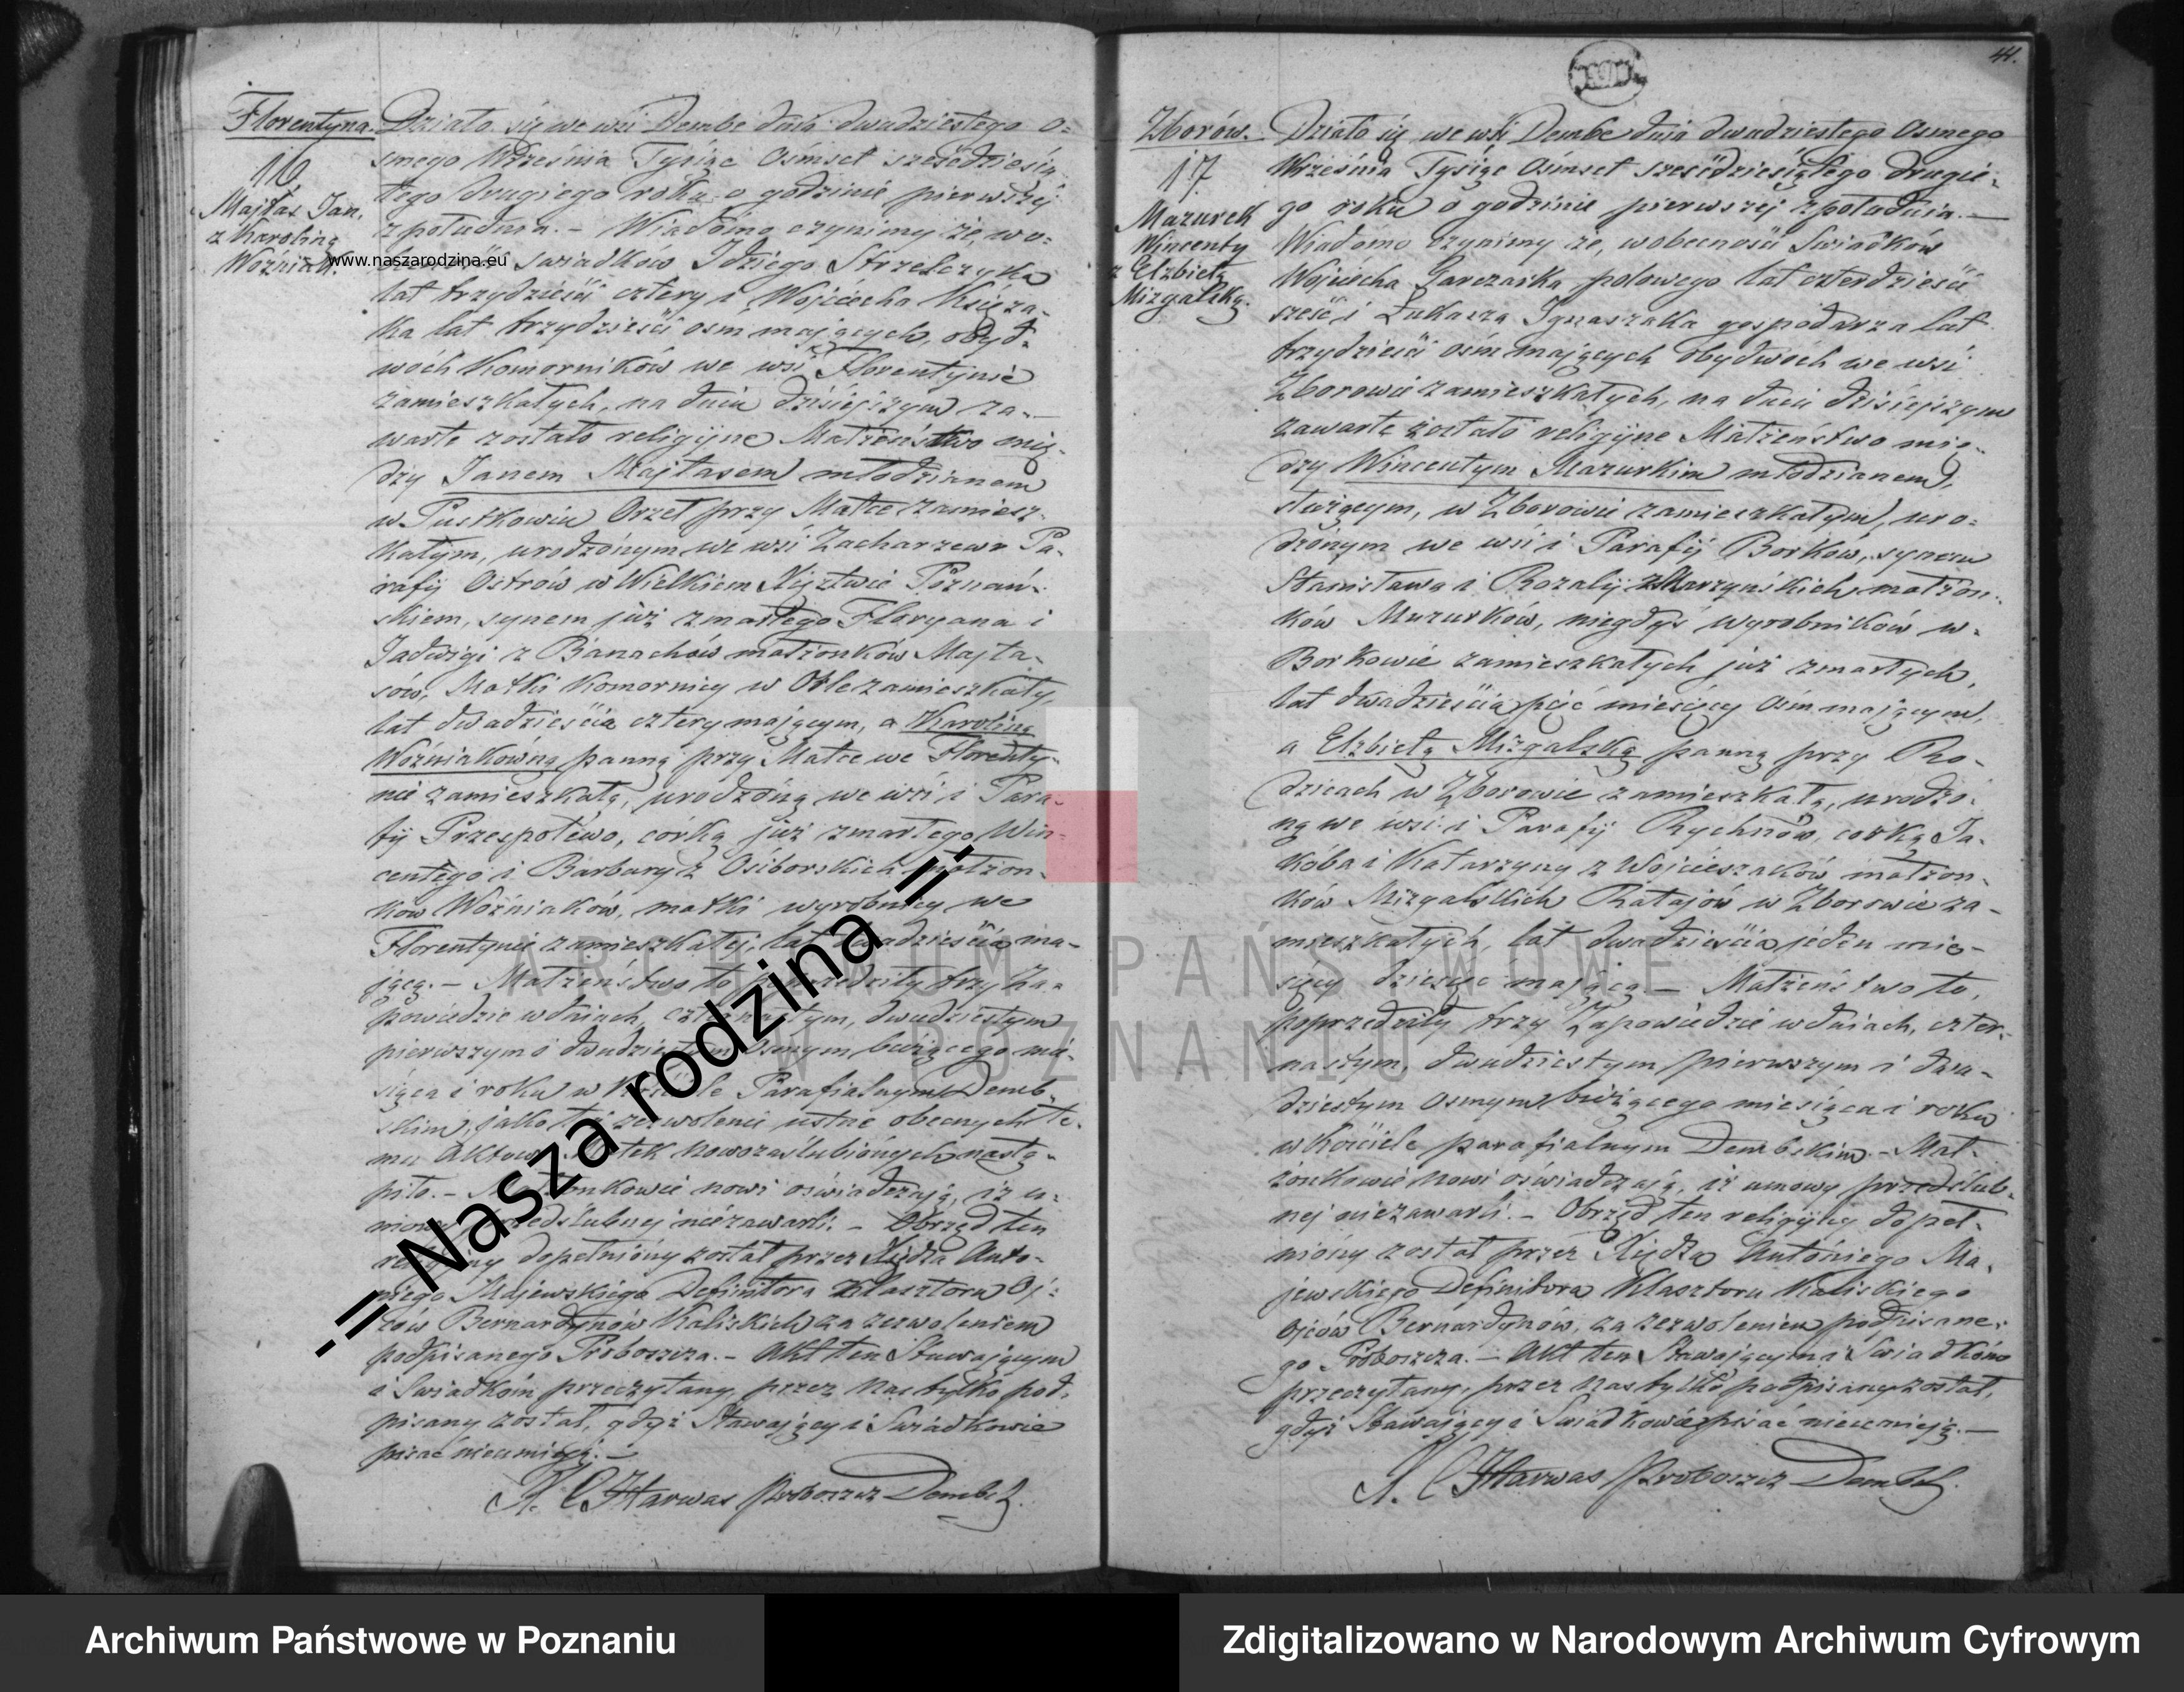 Florentyna.
16.
Majtas Jan.
z Karoliną
Woźniak.
Działo się we wsi Dembe dnia dwudziestego o=
smego Września Tysiąc Ośmset sześćdziesią
tego drugiego roku o godzinie pierwszej
z południa. – Wiadomo czynimy że, wo=
świadków Idziego Strzelczyka
lat trzydzieści cztery i Wojciecha Księża-
ka lat trzydzieści ośm mających, obyd=
wóch Komorników we wsi Florentynie
zamieszkałych, na dniu dzisiejszym za-
warte zostało religijne Małżeństwo mię-
dzy Janem Majtasem młodzianem
w Pustkowiu Orzeł przy Matce zamiesz-
kałym, urodzonym we wsi Zacharzew Pa-
rafij Ostrów w Wielkiem Xięztwie Poznań-
skiem, synem już zmarłego Floryana i
Jadwigi z Banachów małżonków Majta-
sów, Matki Komornicy w zamieszkałej,
lat dwadzieścia cztery mającym, a Karoliną
Woźniakówną panną przy Matce we Florenty-
nie zamieszkałą, urodzoną we wsi i Para-
fij Przespolewo, córką już zmarłego Win-
centego i Barbary z Osiborskich małżon-
ków Woźniaków, matki wyrobnicy we
Florentynie zamieszkałej, lat dwadzieścia ma-
jącą. – Małżeństwo to poprzedziły trzy Za-
powiedzie w dniach, czternastym, dwudziestym
pierwszym i dwudziestym Osmym bieżącego mie-
siąca i roku w Kościele Parafialnym Demb-
skim, jako też zezwolenie ustne obecnych te-
mu Aktowi Matek Nowozaślubionych nastą-
piło. – Małżonkowie nowi oświadczają, iż u-
mowy przedślubnej niezawarli. – Obrząd ten
religijny dopełniony został przez Xiędza Anto-
niego Majewskiego Definitora Klasztoru Oj-
ców Bernardynów Kaliskich za zezwoleniem
podpisanego Proboszcza. – Akt ten Stawającym
i Swiadkom przeczytany, przez Nas tylko pod-
pisany został, gdyż Stawający i Swiadkowie
pisać nieumieją. –
X. C Harwas Proboszcz Dembsk.
41.
Zborów.
17.
Mazurek
Wincenty
z Elżbietą
Mizgalską.
Działo się we wsi Dembe dnia dwudziestego Osmego
Września Tysiąc Ośmset sześćdziesiątego drugie-
go roku o godzinie pierwszej z południa. –
Wiadomo czynimy że, w obecności Swiadków
Wojciecha Garczarka polowego lat czterdzieści
sześć i Łukasza Ignaszaka gospodarza lat
trzydzieści ośm mających obydwóch we wsi
Zborowie zamieszkałych, na dniu dzisiejszym
zawarte zostało religijne Małżeństwo mię-
dzy Wincentym Mazurkim młodzianem,
służącym, w Zborowie zamieszkałym, uro=
dzonym we wsi i Parafij Borków, synem
Stanisława i Rozalij z Skarzyńskich małżon-
ków Mazurków, niegdyś wyrobników w
Borkowie zamieszkałych już zmarłych,
lat dwadzieścia pięć miesięcy Ośm mającym,
a Elżbietą Mizgalską panną przy Ro-
dzicach w Zborowie zamieszkałą, urodzo-
ną we wsi i Parafij Rychnów, corką Ja-
kóba i Katarzyny z Wojcieszaków małżon-
ków Mizgalskich Ratajów w Zborowie za-
mieszkałych, lat dwadzieścia jeden mie-
sięcy dziesięć mającą – Małżeństwo to,
poprzedziły trzy Zapowiedzie w dniach, czter-
nastym, dwudziestym pierwszym i dwu-
dziestym Osmym bieżącego miesiąca i roku
w Kościele parafialnym Dembskim. – Mał-
żonkowie Nowi oświadczają, iż umowy przedślub-
nej niezawarli. – Obrząd ten religijny dopeł-
niony został przez Xiędza Antoniego Ma-
jewskiego Definitora Klasztoru Kaliskiego
Ojców Bernardynów, za zezwoleniem podpisane-
go Proboszcza. – Akt ten Stawającym i Swiadkom
przeczytany, przez Nas tylko podpisany został,
gdyż Stawający i Swiadkowie pisać nieumieją. –
X. C Harwas Proboszcz Dembsk.
www.naszarodzina.eu
-:= Nasza rodzina =:-
ARCHIWUM PAŃSTWOWE
W POZNANIU
Archiwum Państwowe w Poznaniu
Zdigitalizowano w Narodowym Archiwum Cyfrowym